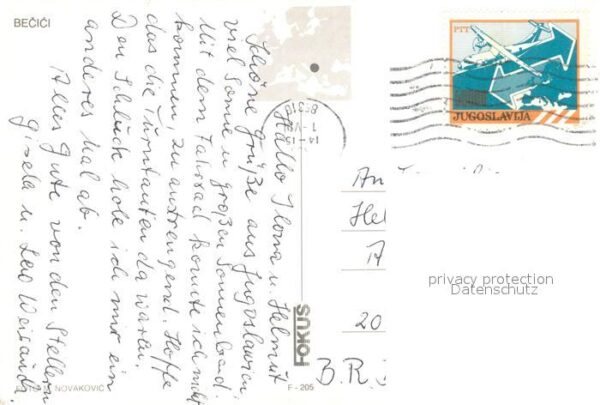 BEČIĆI
Hallo Ilona u. Helmut
Schöne Grüße aus Jugoslawien
viel Sonne u. großen Sonnenbad.
Mit dem Fahrrad konnte ich nicht
kommen, zu anstrengend. Hoffe
das die Tanten da waren.
Den Schluck hole ich mir ein
anderes Mal ab.
Alles Gute von den
Gisela u. Leo
NOVAKOVIĆ
FOKUS
F - 205
PTT
JUGOSLAVIJA
14-15
1-VIII
An
Hel
A
20
B.R.
privacy protection
Datenschutz